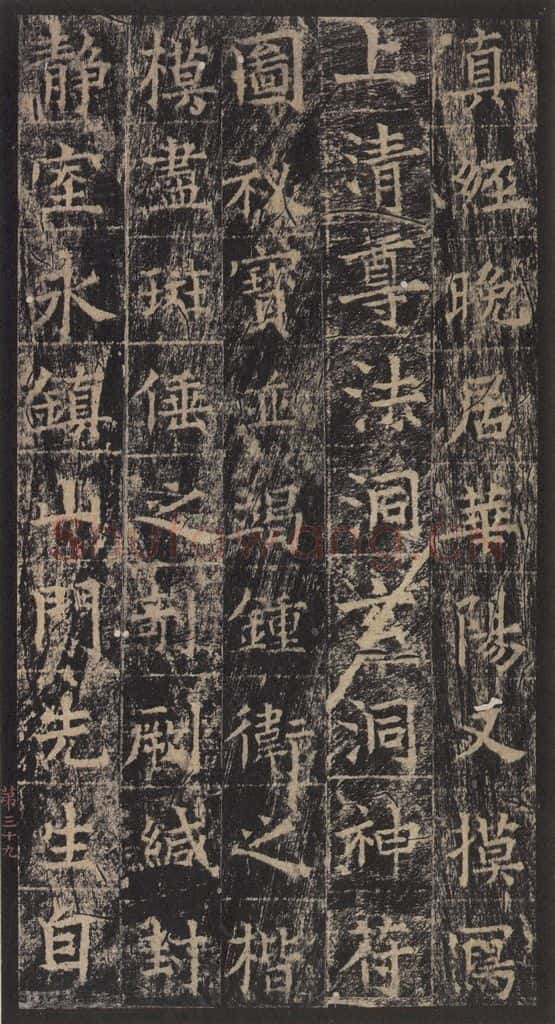 真經晚居華陽又摸寫
上清尊法洞玄洞神符
圖秘寶並竭鍾衛之楷
模盡班倕之剞劂緘封
靜室永鎮山門先生自
第三十九
shufawang.cn